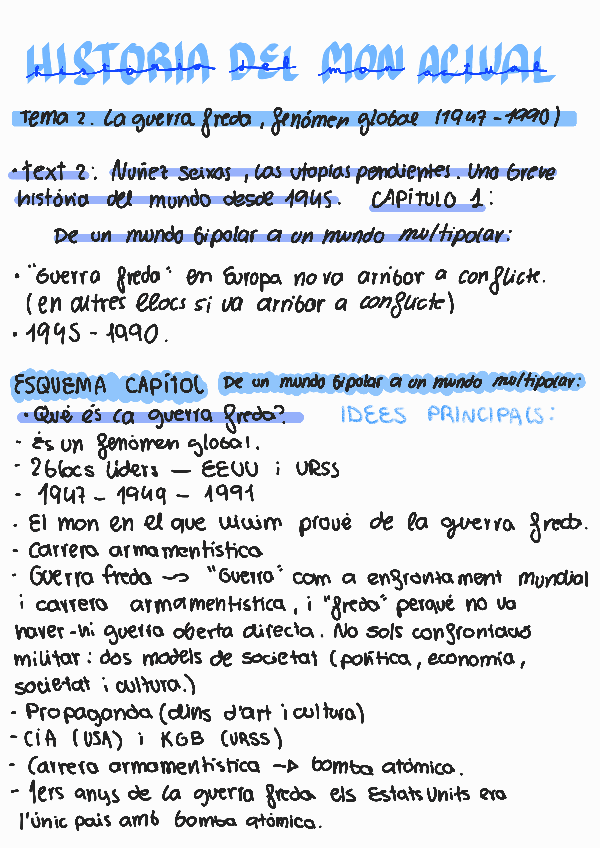 HISTORIA DEL MON ACTUAL
història del mon actual
Tema 2. La guerra freda, fenómen global (1947-1990)
· text 2: Nuñez Seixas, Las utopias pendientes. Una Breve
história del mundo desde 1945. CAPÍTULO 1:
De un mundo bipolar a un mundo multipolar:
· "Guerra freda" en Europa no va arribar a conflicte.
(en altres llocs si va arribar a conflicte)
· 1945 - 1990.
ESQUEMA CAPÍTOL De un mundo bipolar a un mundo multipolar:
· Què és la guerra freda? IDEES PRINCIPALS:
- és un fenómen global.
- 2 blocs líders — EEUU i URSS
- 1947 - 1949 - 1991
· El mon en el que vivim prové de la guerra freda.
- Carrera armamentística
- Guerra freda ~> "Guerra" com a enfrontament mundial
i carrera armamentística, i "freda" perqué no va
haver-hi guerra oberta directa. No sols confrontació
militar: dos models de societat (política, economía,
societat i cultura.)
- Propaganda (dins d'art i cultura)
- CIA (USA) i KGB (URSS)
- Carrera armamentística -> bomba atómica.
- 1ers anys de la guerra freda els Estats Units era
l'únic pais amb bomba atómica.